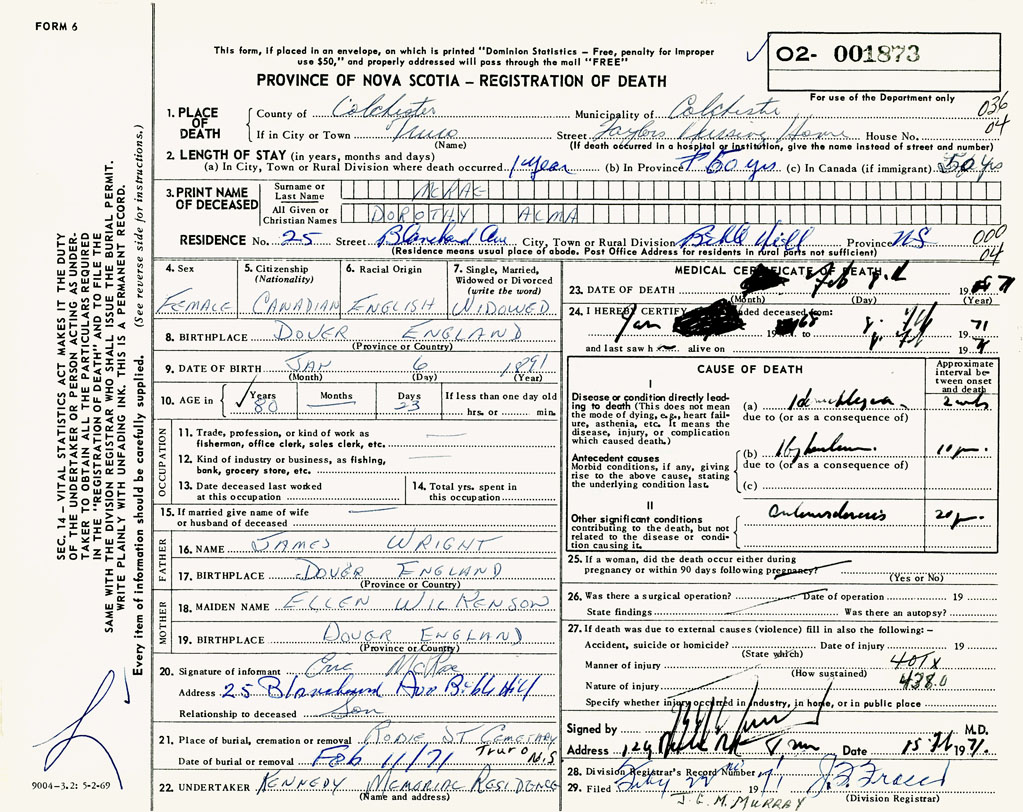 FORM 6
This form, if placed in an envelope, on which is printed "Dominion Statistics – Free, penalty for improper
use $50," and properly addressed will pass through the mail "FREE"
PROVINCE OF NOVA SCOTIA – REGISTRATION OF DEATH
02- 001873
For use of the Department only
036
04
1. PLACE OF DEATH County of Colchester Municipality of Colchester
If in City or Town Truro Street Taylors Nursing Home House No.
(Name) (If death occurred in a hospital or institution, give the name instead of street and number)
2. LENGTH OF STAY (in years, months and days)
(a) In City, Town or Rural Division where death occurred 1 year (b) In Province 50 yrs (c) In Canada (if immigrant) 50 yrs
3. PRINT NAME OF DECEASED Surname or Last Name McRAE
All Given or Christian Names DOROTHY ALMA
RESIDENCE No. 25 Street Blanchard Ave City, Town or Rural Division Bible Hill Province NS
(Residence means usual place of abode. Post Office Address for residents in rural parts not sufficient)
000
04
4. Sex 5. Citizenship (Nationality) 6. Racial Origin 7. Single, Married, Widowed or Divorced (write the word)
FEMALE CANADIAN ENGLISH WIDOWED
8. BIRTHPLACE DOVER ENGLAND
(Province or Country)
9. DATE OF BIRTH JAN 6 1891
(Month) (Day) (Year)
10. AGE in Years 80 Months Days 23 If less than one day old
hrs. or min.
OCCUPATION
11. Trade, profession, or kind of work as
fisherman, office clerk, sales clerk, etc.
12. Kind of industry or business, as fishing,
bank, grocery store, etc.
13. Date deceased last worked
at this occupation
14. Total yrs. spent in
this occupation
15. If married give name of wife
or husband of deceased
FATHER
16. NAME JAMES WRIGHT
17. BIRTHPLACE DOVER ENGLAND
(Province or Country)
MOTHER
18. MAIDEN NAME ELLEN WILKENSON
19. BIRTHPLACE DOVER ENGLAND
(Province or Country)
20. Signature of informant Eric McRae
Address 25 Blanchard Ave Bible Hill
Relationship to deceased Son
21. Place of burial, cremation or removal ROBIE ST CEMETARY
TRURO N.S
Date of burial or removal Feb 11/71
22. UNDERTAKER KENNEDY MEMORIAL RESIDENCE
(Name and address)
MEDICAL CERTIFICATE OF DEATH
23. DATE OF DEATH Feb 19 71
(Month) (Day) (Year)
24. I HEREBY CERTIFY attended deceased from:
Jan 19 68 19 71
and last saw h alive on 19
CAUSE OF DEATH
Approximate interval between onset and death
I
Disease or condition directly leading
to death (This does not mean
the mode of dying, e.g., heart failure,
asthenia, etc. It means the
disease, injury, or complication
which caused death.)
(a) 2 wks
due to (or as a consequence of)
Antecedent causes
Morbid conditions, if any, giving
rise to the above cause, stating
the underlying condition last.
(b)
due to (or as a consequence of)
(c)
II
Other significant conditions
contributing to the death, but not
related to the disease or condition
causing it.
25. If a woman, did the death occur either during
pregnancy or within 90 days following pregnancy?
(Yes or No)
26. Was there a surgical operation? Date of operation 19
State findings Was there an autopsy?
27. If death was due to external causes (violence) fill in also the following: –
Accident, suicide or homicide? Date of injury 19
(State which)
Manner of injury 401X
(How sustained)
Nature of injury 438.0
Specify whether injury occurred in industry, in home, or in public place
Signed by M.D.
Address Date 15 Feb 1971
28. Division Registrar's Record Number
29. Filed Feby 22nd 1971
(Division Registrar)
J. E. M. MURRAY
SEC. 14 – VITAL STATISTICS ACT MAKES IT THE DUTY
OF THE UNDERTAKER OR PERSON ACTING AS UNDERTAKER
TO OBTAIN ALL THE PARTICULARS REQUIRED
IN THE "REGISTRATION OF DEATH" AND TO FILE THE
SAME WITH THE DIVISION REGISTRAR WHO SHALL ISSUE THE BURIAL PERMIT.
WRITE PLAINLY WITH UNFADING INK. THIS IS A PERMANENT RECORD.
Every item of information should be carefully supplied. (See reverse side for instructions.)
9004-3.2: 5-2-69